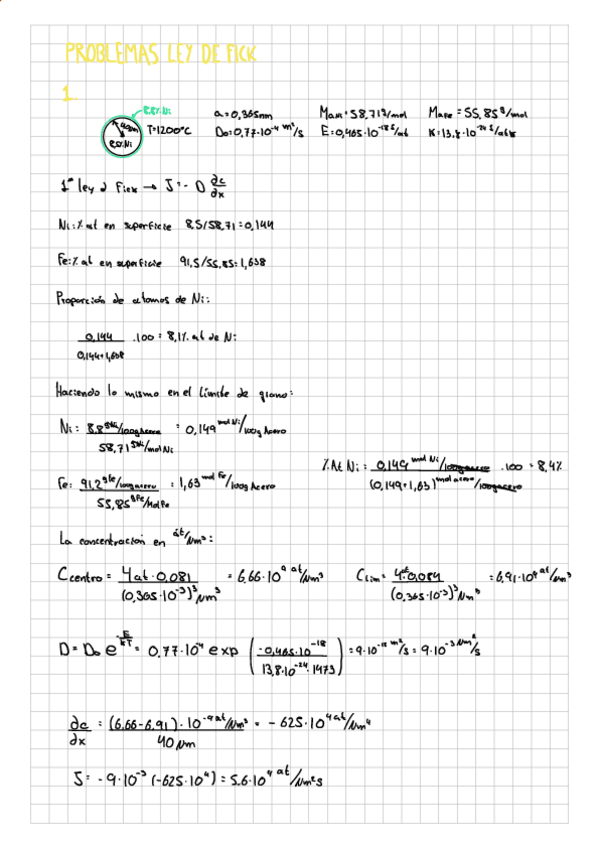 PROBLEMAS LEY DE FICK
1.
8.8% Ni
40μm
8.5% Ni
T=1200°C
a=0,365nm
D₀=0,77·10⁻⁴ m²/s
M_aNi=58,71 g/mol
E=0,465·10⁻¹⁸ J/at
M_aFe=55,85 g/mol
K=13,8·10⁻²⁴ J/at K
1ª ley d Fick → J=-D ∂c/∂x
Ni: % at en superficie 8,5/58,71=0,144
Fe: % at en superficie 91,5/55,85=1,638
Proporción de átomos de Ni:
0,144/(0,144+1,638) ·100 = 8,1% at de Ni
Haciendo lo mismo en el límite de grano:
Ni: (8.8 g Ni/100g Acero)/(58,71 g Ni/mol Ni) = 0,149 mol Ni/100g Acero
Fe: (91,2 g Fe/100g acero)/(55,85 g Fe/Mol Fe) = 1,63 mol Fe/100g Acero
% At Ni = (0,149 mol Ni/100g acero)/((0,149+1,63) mol acero/100g acero) ·100 = 8,4%
La concentración en át/μm³:
C centro = 4at·0,081/(0,365·10⁻³)³ μm³ = 6,66·10⁹ at/μm³
C lím = 4at·0,084/(0,365·10⁻³)³ μm³ = 6,91·10⁹ at/μm³
D = D₀ e^(-E/KT) = 0,77·10⁻⁴ exp (-0,465·10⁻¹⁸/13,8·10⁻²⁴·1473) = 9·10⁻¹⁵ m²/s = 9·10⁻³ μm²/s
∂c/∂x = (6,66-6,91)·10⁻⁹ at/μm³/40 μm = -625·10⁴ at/μm⁴
J = -9·10⁻³ (-625·10⁴) = 5.6·10⁴ at/μm²s